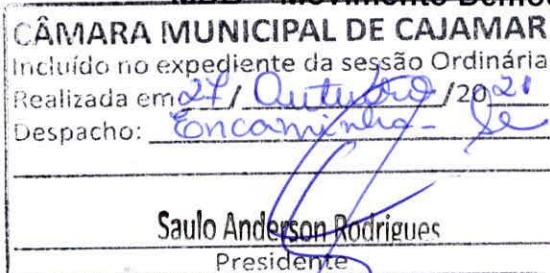 MDB - Movimento Democ
CÂMARA MUNICIPAL DE CAJAMAR
Incluído no expediente da sessão Ordinária
Realizada em 27 / Outubro /2021
Despacho: Encaminha-se
Saulo Anderson Rodrigues
Presidente